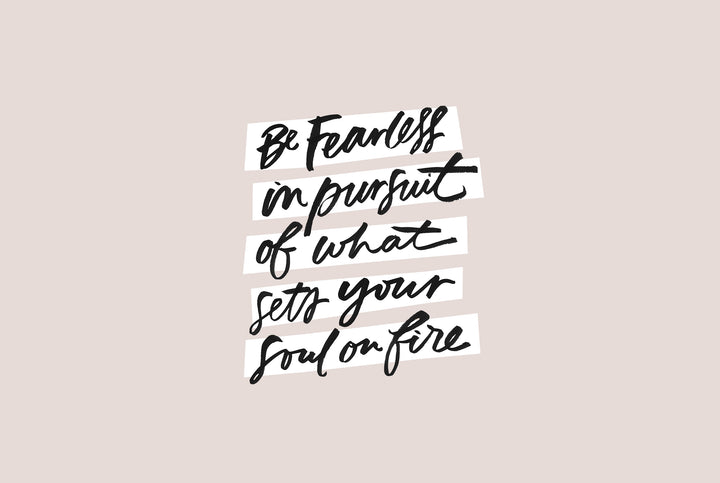 Be Fearless
in pursuit
of what
sets your
soul on fire